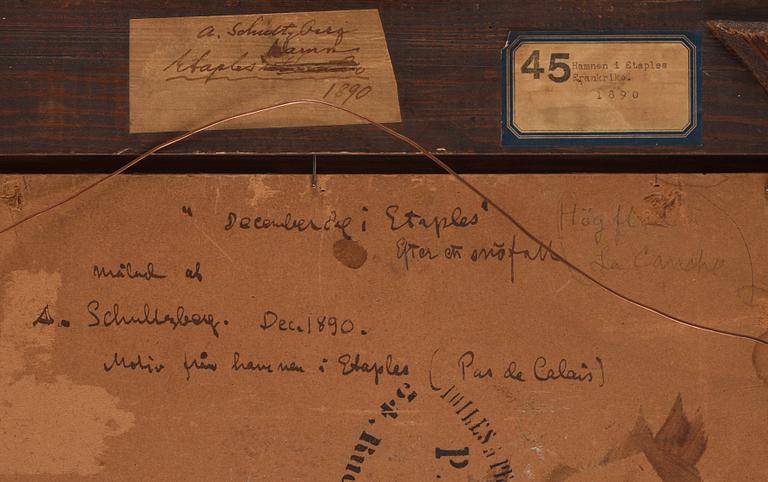 A. Schultzberg
Hamn
Etaples
1890
45
Hamnen i Etaples
Frankrike.
1890
"Decemberdag i Etaples"
Efter ett snöfall
Högflod
La Canche
målad af
A. Schultzberg. Dec. 1890.
Motiv från hamnen i Etaples (Pas de Calais)
TOILES & P